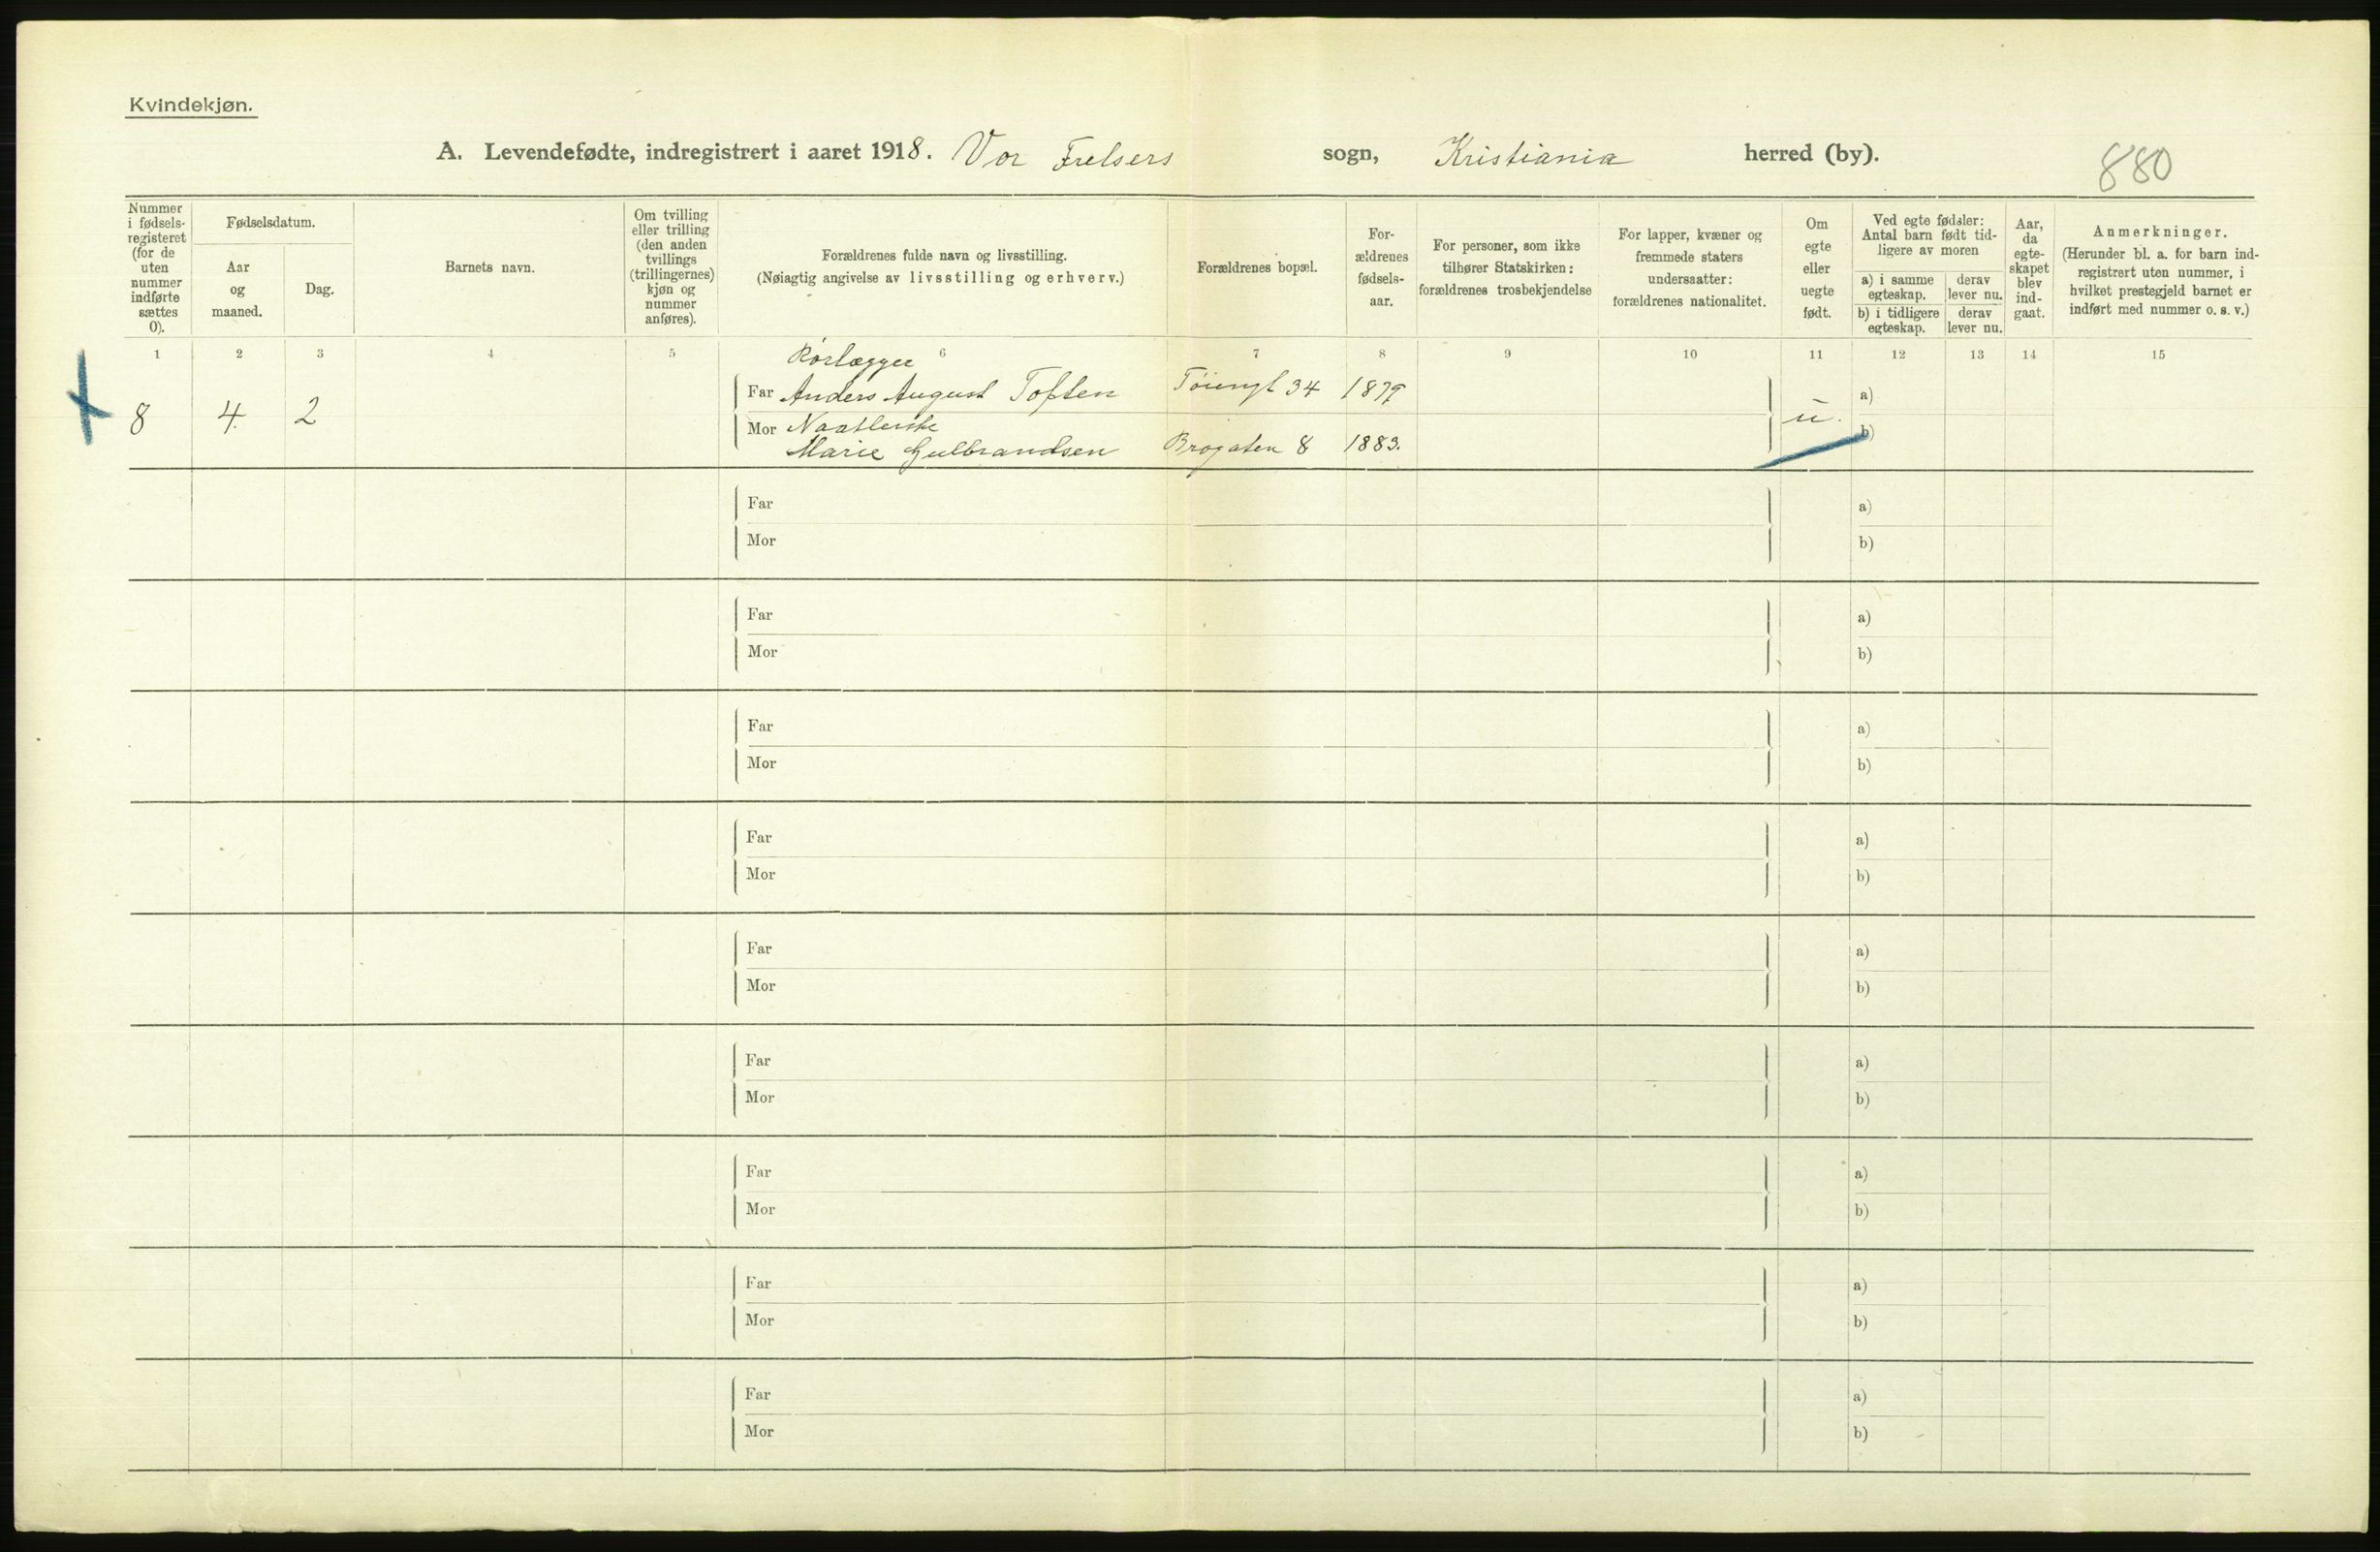 Kvindekjøn.
A. Levendefødte, indregistrert i aaret 1918. Vor Frelsers sogn, Kristiania herred (by). 880
Nummer i fødsels-registeret (for de uten nummer indførte sættes 0).
Fødselsdatum.
Aar og maaned.
Dag.
Barnets navn.
Om tvilling eller trilling (den anden tvillings (trillingernes) kjøn og nummer anføres).
Forældrenes fulde navn og livsstilling.
(Nøiagtig angivelse av livsstilling og erhverv.)
Forældrenes bopæl.
For-ældrenes fødsels-aar.
For personer, som ikke tilhører Statskirken: forældrenes trosbekjendelse
For lapper, kvæner og fremmede staters undersaatter: forældrenes nationalitet.
Om egte eller uegte født.
Ved egte fødsler: Antal barn født tid-ligere av moren
a) i samme egteskap.
derav lever nu.
b) i tidligere egteskap.
derav lever nu.
Aar, da egte-skapet blev ind-gaat.
Anmerkninger.
(Herunder bl. a. for barn ind-registrert uten nummer, i hvilket prestegjeld barnet er indført med nummer o. s. v.)
1 2 3 4 5 6 7 8 9 10 11 12 13 14 15
Rørlægger
8 4. 2 Far Anders August Toften Töiengt 34 1879 u. a)
Mor Naatlerske b)
Marie Gulbrandsen Brogaten 8 1883.
Far a)
Mor b)
Far a)
Mor b)
Far a)
Mor b)
Far a)
Mor b)
Far a)
Mor b)
Far a)
Mor b)
Far a)
Mor b)
Far a)
Mor b)
Far a)
Mor b)